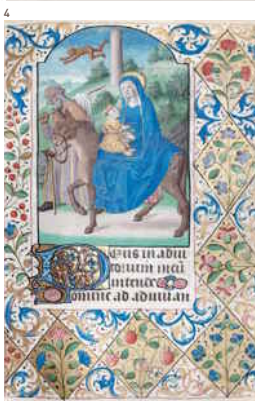 4
Deus in adiu
torium meū
intende
Domine ad adiuuan